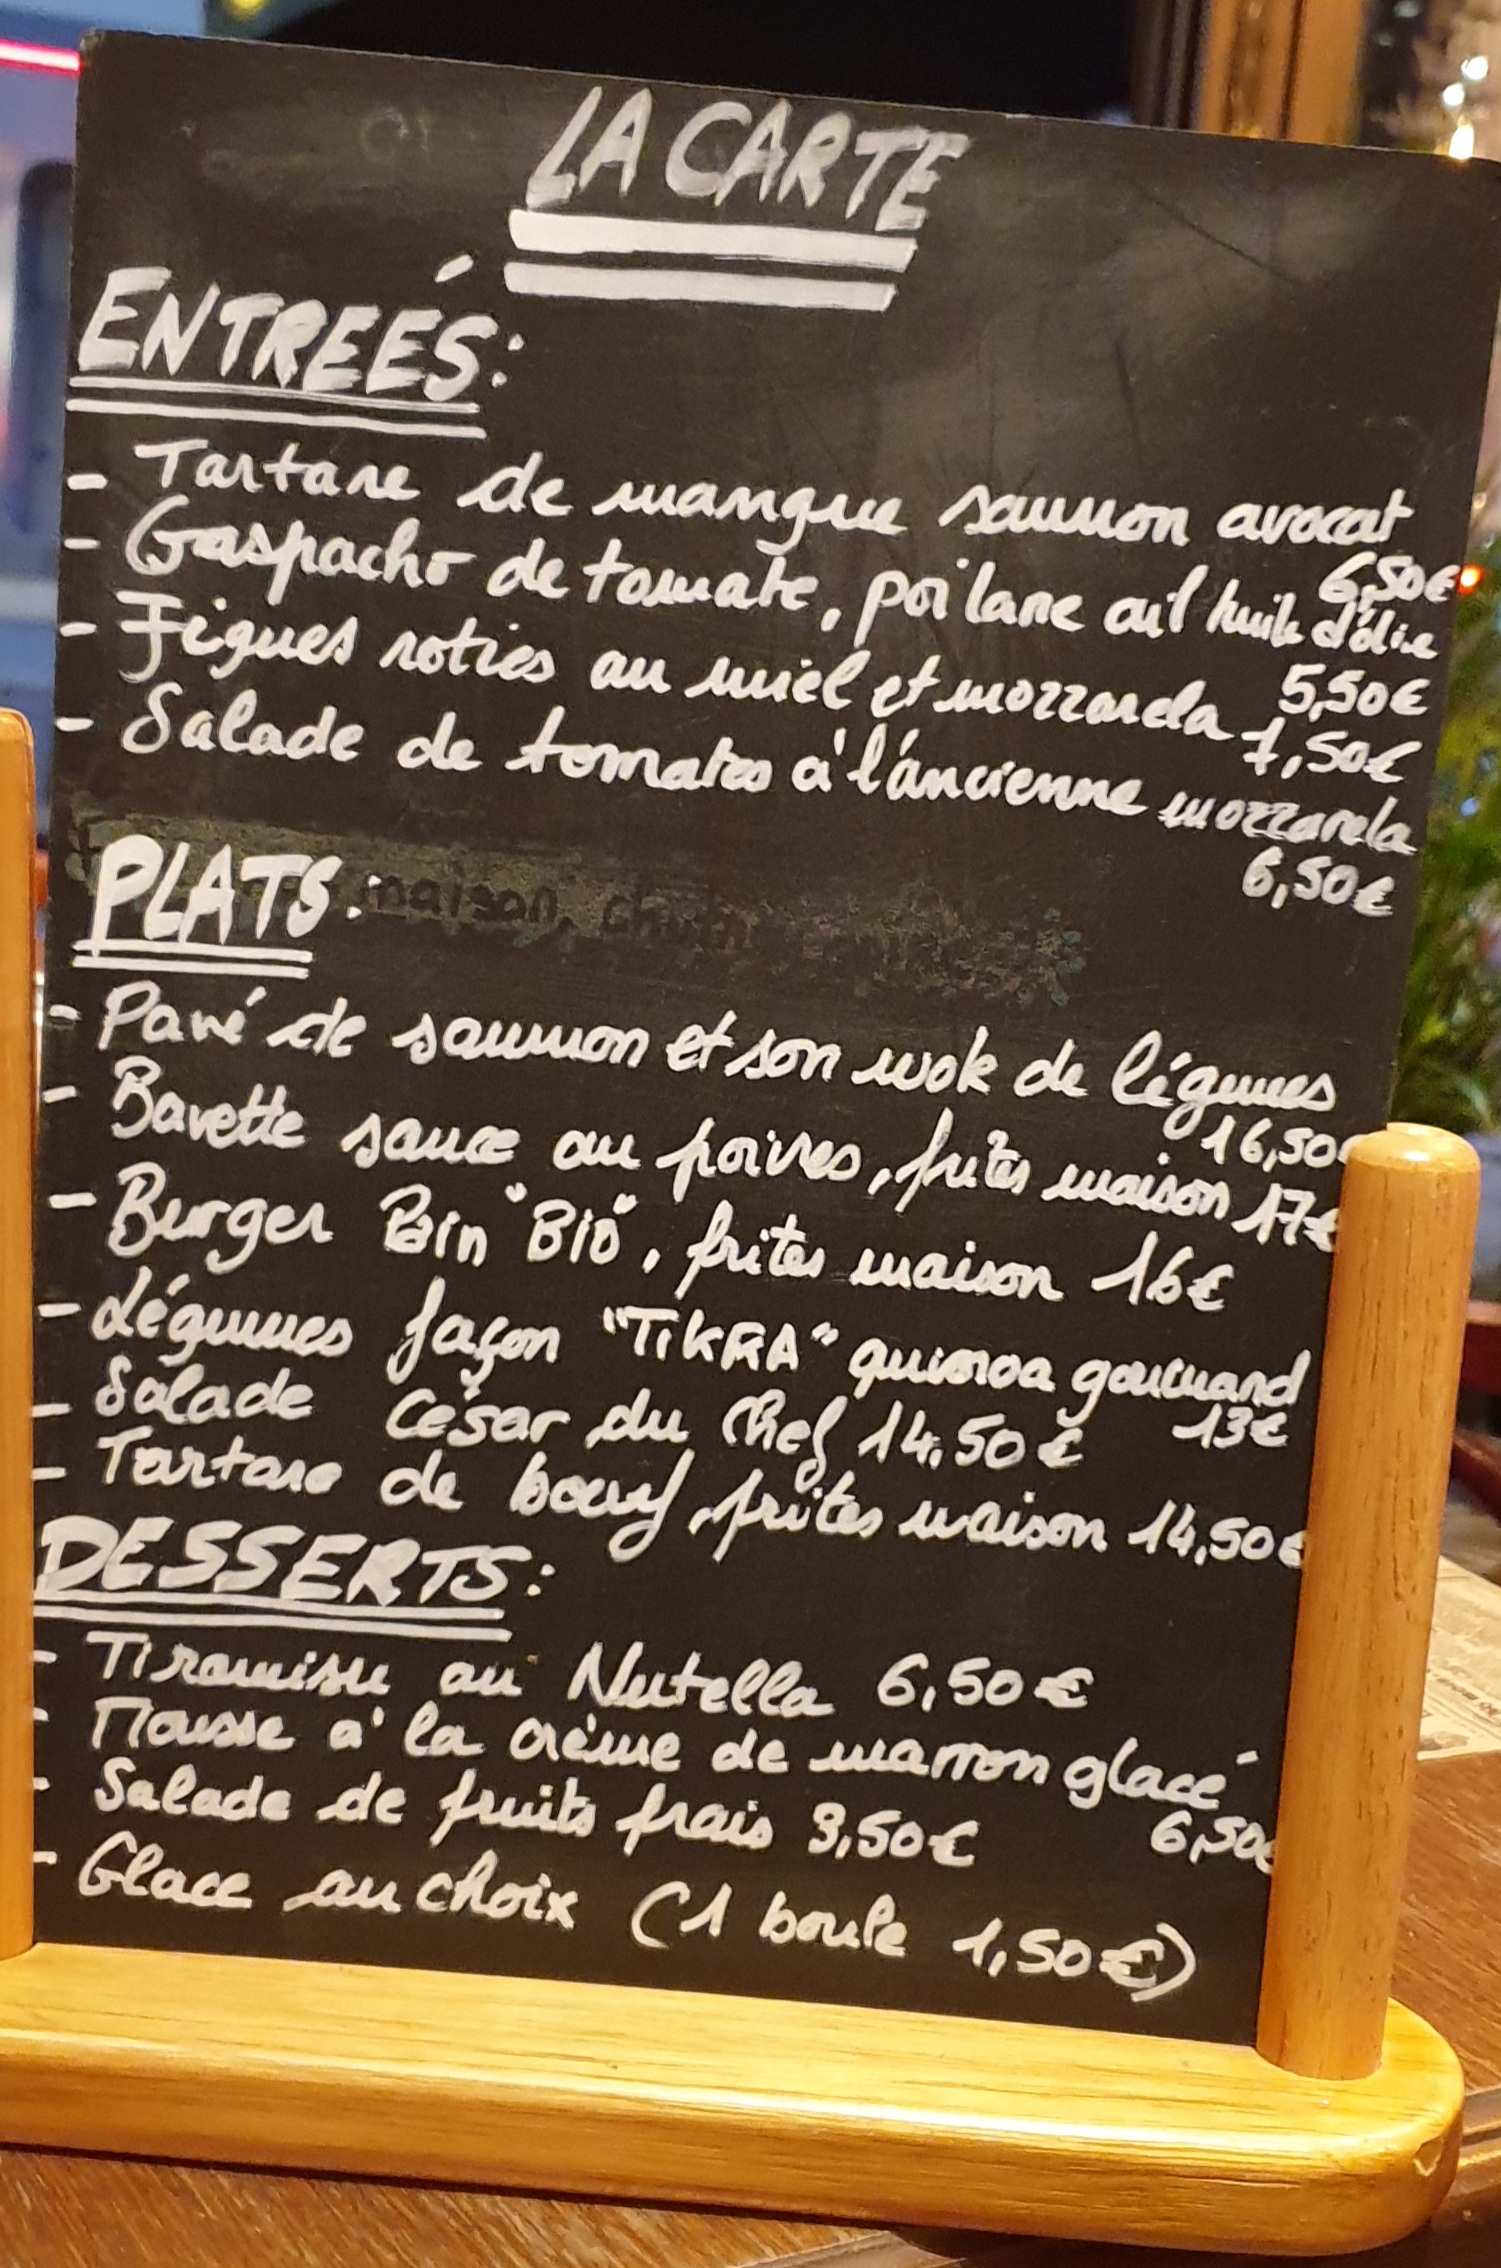 LA CARTE
ENTREÉS:
- Tartare de mangue saumon avocat
6,50€
- Gaspacho de tomate, poilane ail huile d'olive
5,50€
- Figues roties au miel et mozzarela 7,50€
- Salade de tomates à l'áncienne mozzarela
6,50€
PLATS:
maison,
- Pavé de saumon et son wok de légumes
16,50€
- Bavette sauce au poivres, frites maison 17€
- Burger Pain "Bio", frites maison 16€
- Légumes façon "TIKRA" quinoa gourmand
13€
- Salade César du Chef 14,50€
- Tartare de bœuf, frites maison 14,50€
DESSERTS:
- Tiramisu au Nutella 6,50€
- Mousse à la crème de marron glacé
6,50€
- Salade de fruits frais 3,50€
- Glace au choix (1 boule 1,50€)